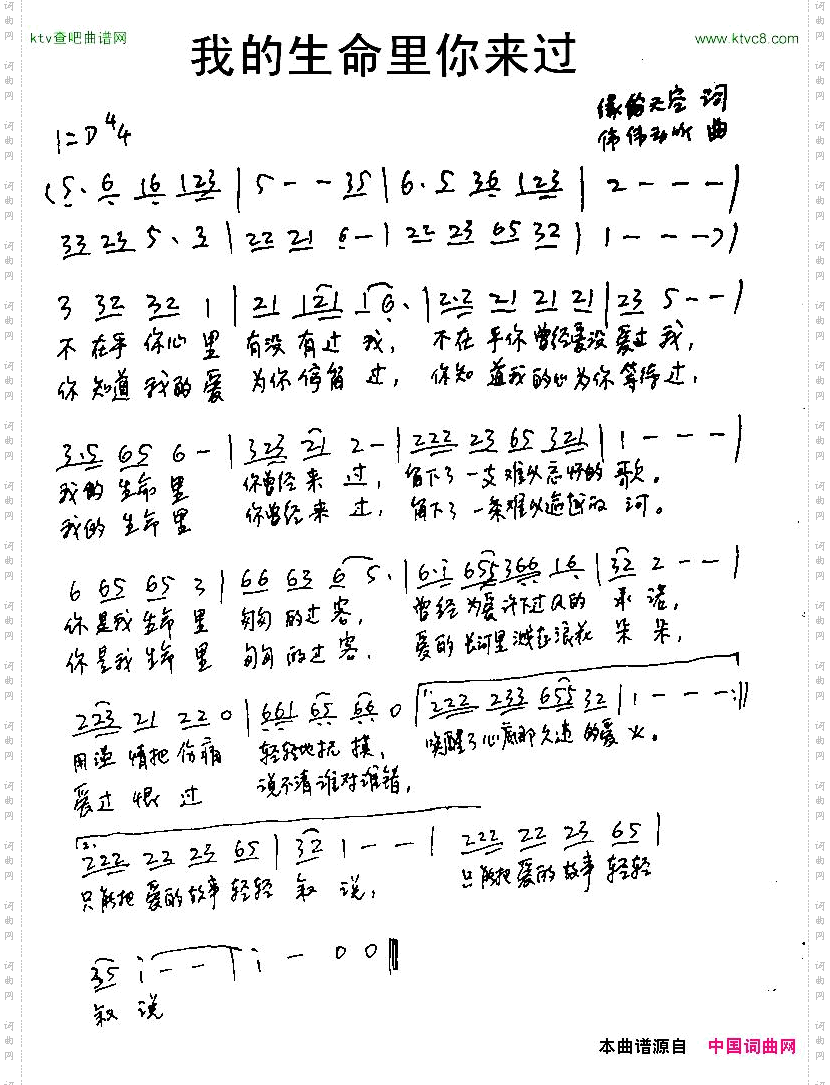 ktv查吧曲谱网
www.ktvc8.com
我的生命里你来过
1=D 4/4
缘的天空 词
伟伟 曲
(5. 6 16 123 | 5 - - 35 | 6. 5 36 123 | 2 - - - |
33 23 5. 3 | 22 21 6 - | 22 23 65 32 | 1 - - - ) |
3 32 32 1 | 21 121 16. | 2.2 21 21 21 | 23 5 - - |
不在乎你心里 有没有过我, 不在乎你曾经爱没爱过我,
你知道我的爱 为你停留过, 你知道我的心为你等待过,
3.5 65 6 - | 323 21 2 - | 222 23 65 321 | 1 - - - |
我的生命里 你曾经来过, 留下了一支难以忘怀的歌。
我的生命里 你曾经来过, 留下了一条难以逾越的河。
6 65 65 3 | 66 63 6 5. | 6.i 655 366 16 | 32 2 - - |
你是我生命里 匆匆的过客, 曾经为爱许下过的承诺,
你是我生命里 匆匆的过客. 爱的长河里溅起浪花朵朵,
223 21 22 0 | 661 65 66 0 | 1. 222 233 655 32 | 1 - - - :||
用温情把伤痛 轻轻地抚摸, 唤醒了心底那久违的爱火。
爱过恨过 说不清谁对谁错,
2. 222 22 23 65 | 32 1 - - | 222 22 23 65 |
只能把爱的故事轻轻叙说, 只能把爱的故事轻轻
35 i - - | i - 0 0 ||
叙说
本曲谱源自 中国词曲网